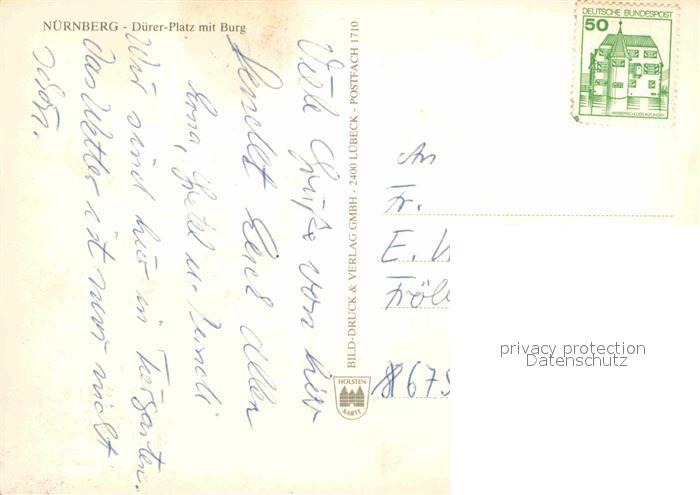 NÜRNBERG - Dürer-Platz mit Burg
Viele Grüße von hier
sendet Euch allen
Erna, Gretel u.
Wir sind hier im Tiergarten.
das Wetter ist nur nicht
schön.
BILD-DRUCK & VERLAG GMBH - 2400 LÜBECK - POSTFACH 1710
HOLSTEN
KARTE
DEUTSCHE BUNDESPOST
50
WASSERSCHLOSS INZLINGEN
An
Fr.
E.
Fröl
867
privacy protection
Datenschutz